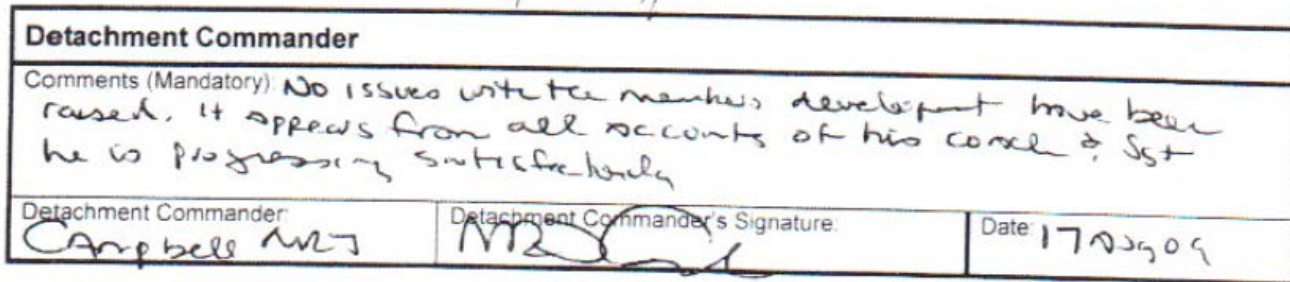 Detachment Commander
Comments (Mandatory): No issues with the members development have been
raised. It appears from all accounts of his coach & Sgt
he is progressing satisfactorily
Detachment Commander:
Campbell
Detachment Commander's Signature:
Date: 17 Aug 09